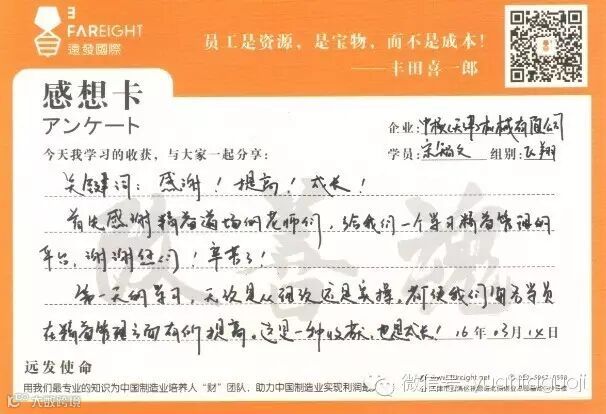 FAREIGHT
遠發國際
员工是资源，是宝物，而不是成本！
——丰田喜一郎
感想卡
アンケート
企业：中核(天津)机械有限公司
今天我学习的收获，与大家一起分享：
学员：宋福文 组别：飞翔
关键词：感谢！提高！成长！
首先感谢精益道场的老师们，给我们一个学习精益管理的
平台，谢谢您们！辛苦了！
第一天的学习，无论是从理论还是实操，都使我们每名学员
在精益管理方面有所提高。这是一种收获，也是成长！16年03月14日
改善魂
远发使命
用我们最专业的知识为中国制造业培养人“财”团队，助力中国制造业实现利润
微信号：yuanfaguoji
大数跨境